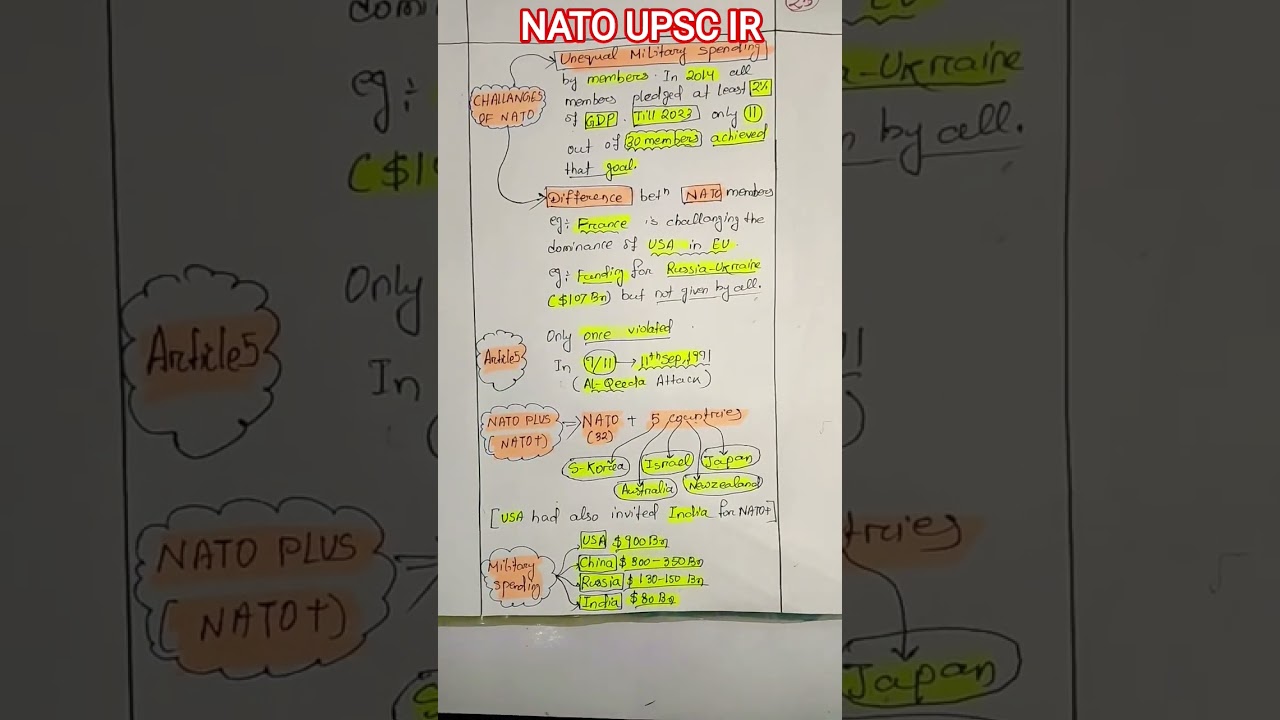 NATO UPSC IR
23
CHALLANGES
OF NATO
Unequal Military Spending
by members. In 2014 all
members pledged at least 2%
of GDP. Till 2023 only 11
out of 30 members achieved
that goal.
Difference betⁿ NATO members
eg: France is challanging the
dominance of USA in EU.
eg: Funding for Russia-Ukraine
($107 Bn) but not given by all.
Article 5
Only once violated
In 9/11 → 11th Sep, 1991
(Al-Qeeda Attack)
NATO PLUS
(NATO+)
⇒ NATO + 5 countries
(32)
S-Korea Israel Japan
Australia Newzealand
[USA had also invited India for NATO+]
Military
spending
USA $900 Bn
China $300-350 Bn
Russia $130-150 Bn
India $80 Bn
eg:
($1
Only
Article 5
In
NATO PLUS
(NATO+)
EU
-Ukraine
by all.
tries
Japan